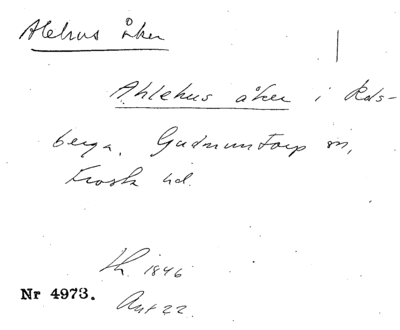 Alehus åker
Ahlehus åker i Rds-
berga, Gudmuntorp sn,
Frosta hd.
1846
Nr 4973.
Ant 22.